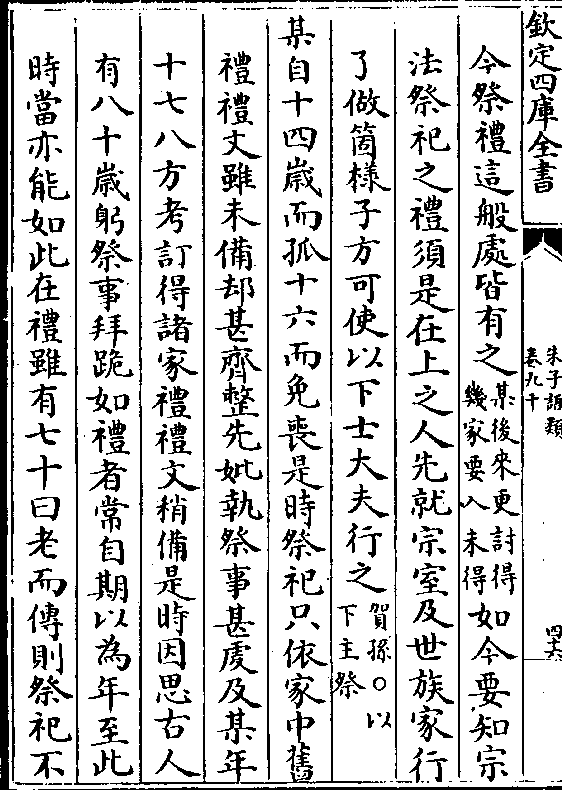 欽定四庫全書
朱子語類
卷九十
四十六
今祭禮這般處皆有之某後來更討得幾家要入未得如今要知宗
法祭祀之禮須是在上之人先就宗室及世族家行
了做箇樣子方可使以下士大夫行之賀孫○以下主祭
某自十四歲而孤十六而免喪是時祭祀只依家中舊
禮禮文雖未備却甚齊整先妣執祭事甚䖍及某年
十七八方考訂得諸家禮禮文稍備是時因思古人
有八十歲躬祭事拜跪如禮者常自期以為年至此
時當亦能如此在禮雖有七十曰老而傳則祭祀不